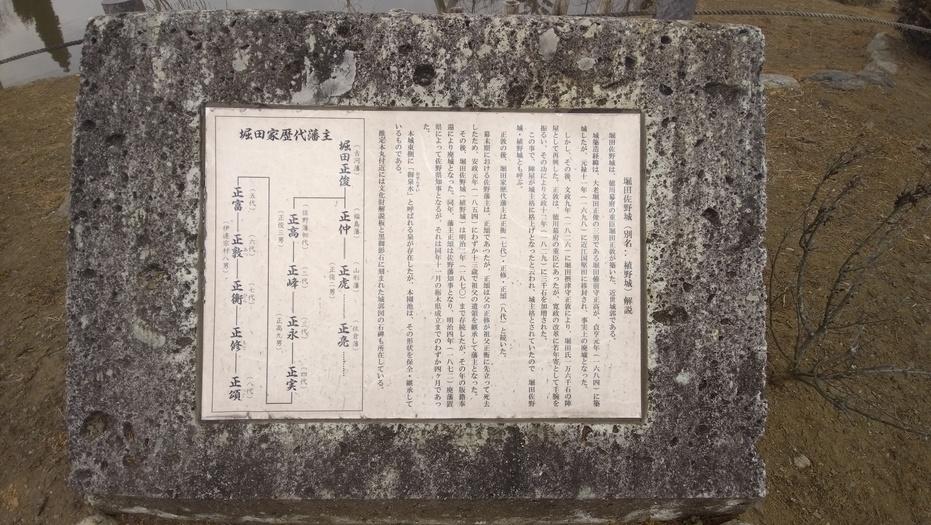 堀田佐野城（別名：植野城）解説
堀田佐野城は、徳川幕府の重臣堀田正敦が築いた、近世城郭である。
城築造経緯は、大老堀田正俊の三男である堀田備前守正高が、貞享元年（一六八四）に築
城したが、元禄十一年（一六九八）に近江国堅田に移封され、事実上の廃墟となった。
しかし、その後、文政九年（一八二六）に堀田摂津守正敦により、堀田氏一万六千石の陣
屋として再興した。正敦は、徳川幕府の重臣にあったが、寛政の改革に若年寄として手腕を
振るい、その功により文政十二年（一八二九）に三千石を加増された。
この事で、陣屋が城主格に格上げとなったと云われ、城主格とされていたので　堀田佐野
城・植野城とも呼ぶ。
正敦の後、堀田家歴代藩主は正衡（七代）・正修・正頌（八代）と続いた。
幕末期における佐野藩主は、正頌であったが、正頌は父の正修が祖父正衡に先立って死去
したため、安政元年（一八五四）にわずか十三歳で祖父の遺領を継承して藩主となった。
その後、堀田佐野城（植野城）は明治三年（一八七〇）まで存続したが、その年の版籍奉
還により廃城となった。同年、藩主正頌は佐野藩知事となり、明治四年（一八七一）廃藩置
県によって佐野県知事となるが、それは同年十一月の栃木県成立までのわずか四ヶ月であっ
た。
本城東側に「御泉水」と呼ばれる泉が存在したが、本園池は、その形状を保全・継承して
いるものである。
推定本丸付近には文化財解説板と黒御影石に刻まれた城郭図の石碑も所在している。
堀田家歴代藩主
（古河藩）
堀田正俊
（福島藩）
正仲
（山形藩）
正虎
（正俊二男）
（佐倉藩）
正亮……
（佐野藩初代）
正高
（正俊三男）
（二代）
正峰
（三代）
正永
（正高九男）
（四代）
正実
（五代）
正富
（六代）
正敦
（伊達宗村八男）
（七代）
正衡
正修
（八代）
正頌